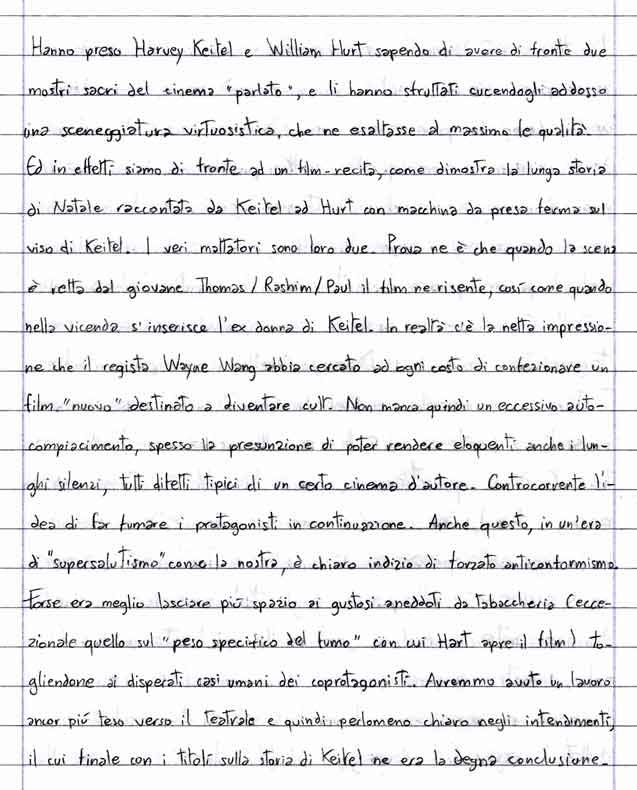 Hanno preso Harvey Keitel e William Hurt sapendo di avere di fronte due
mostri sacri del cinema "parlato", e li hanno sfruttati cucendogli addosso
una sceneggiatura virtuosistica, che ne esaltasse al massimo le qualità.
Ed in effetti siamo di fronte ad un film-recita, come dimostra la lunga storia
di Natale raccontata da Keitel ad Hurt con macchina da presa ferma sul
viso di Keitel. I veri mattatori sono loro due. Prova ne è che quando la scena
è retta dal giovane Thomas/Rashim/Paul il film ne risente, così come quando
nella vicenda s'inserisce l'ex donna di Keitel. In realtà c'è la netta impressio-
ne che il regista Wayne Wang abbia cercato ad ogni costo di confezionare un
film "nuovo" destinato a diventare cult. Non manca quindi un eccessivo auto-
compiacimento, spesso la presunzione di poter rendere eloquenti anche i lun-
ghi silenzi, tutti difetti tipici di un certo cinema d'autore. Controcorrente l'i-
dea di far fumare i protagonisti in continuazione. Anche questo, in un'era
di "supersalutismo" come la nostra, è chiaro indizio di forzato anticonformismo.
Forse era meglio lasciare più spazio ai gustosi aneddoti da tabaccheria (ecce-
zionale quello sul "peso specifico del fumo" con cui Hart apre il film) to-
gliendone ai disperati casi umani dei coprotagonisti. Avremmo avuto un lavoro
ancor più teso verso il teatrale e quindi perlomeno chiaro negli intendimenti,
il cui finale con i titoli sulla storia di Keitel ne era la degna conclusione.